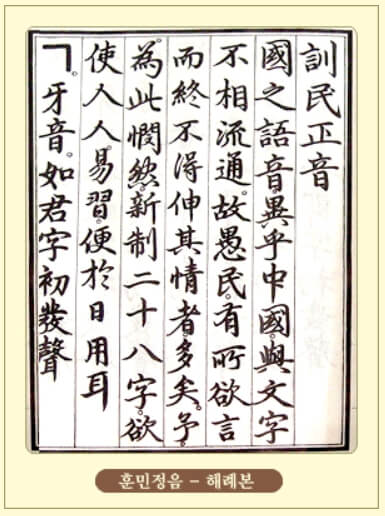 訓民正音
國之語音。異乎中國。與文字
不相流通。故愚民。有所欲言
而終不得伸其情者多矣。予。
為此憫然。新制二十八字。欲
使人人。易習。便於日用耳
ㄱ。牙音。如君字初發聲
훈민정음 - 해례본